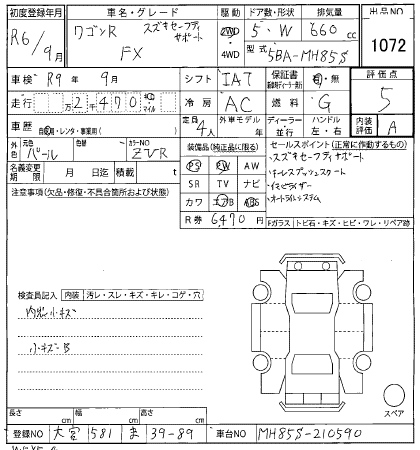 初度登録年月 車名・グレード 駆動 ドア数・形状 排気量 出品NO
R6/9月 ワゴンR スズキセーフティサポート FX 2WD 4WD 5・W 660cc 1072
型式 5BA-MH85S
車検 R9年 9月 シフト IAT 保証書 有・無 評価点
走行 万2千470 km マイル 冷房 AC 燃料 G 5
車歴 自家用・レンタ・事業用( ) 定員 4人 外車モデル 年 ディーラー 並行 ハンドル 左・右 内装評価 A
外色 元色 パール 色替 カラーNO ZVR
装備品(純正品に限る) セールスポイント(正常に作動するもの)
名義変更期限 月 日迄 積載 t PS PW AW スズキセーフティサポート
注意事項(欠品・修復・不具合箇所および状態) SR TV ナビ キーレスプッシュスタート
カワ エアB ABS イモビライザー
R券 6470円 オートライトシステム
Fガラス トビ石・キズ・ヒビ・ワレ・リペア跡
検査員記入 内装 汚レ・スレ・キズ・キレ・コゲ・穴
内装小キズ
小キズB
スペア
長さ cm 幅 cm 高さ cm
登録NO 大宮 581 ま 39-89 車台NO MH85S-210590